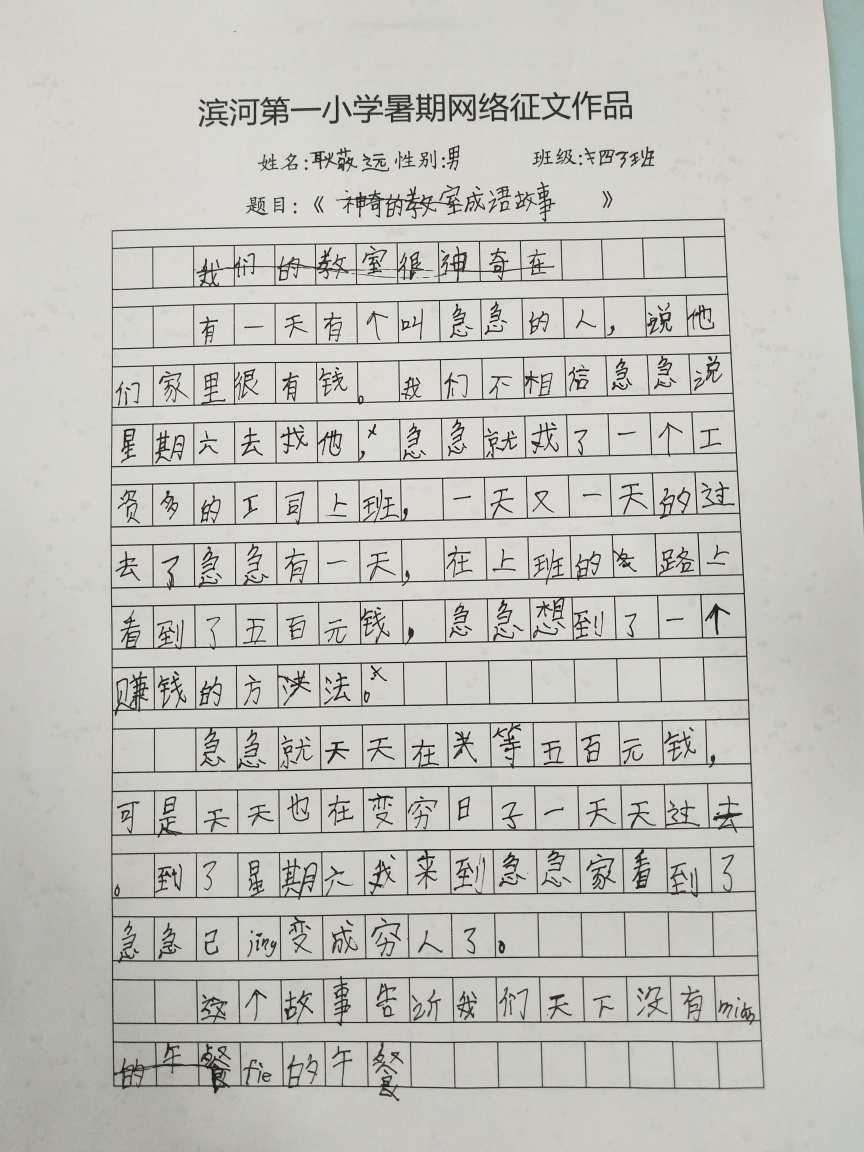 滨河第一小学暑期网络征文作品
姓名:耿薮远 性别:男 班级:四3班
题目:《 神奇的教室成语故事 》
我们的教室很神奇在
有一天有个叫急急的人,说他
们家里很有钱。我们不相信急急说
星期六去找他,急急就找了一个工
资多的工司上班,一天又一天的过
去了急急有一天,在上班的路上
看到了五百元钱,急急想到了一个
赚钱的方法。
急急就天天在等五百元钱,
可是天天也在变穷日子一天天过去
。到了星期六我来到急急家看到了
急急已jing变成穷人了。
这个故事告诉我们天下没有mian
的午餐fie的午餐